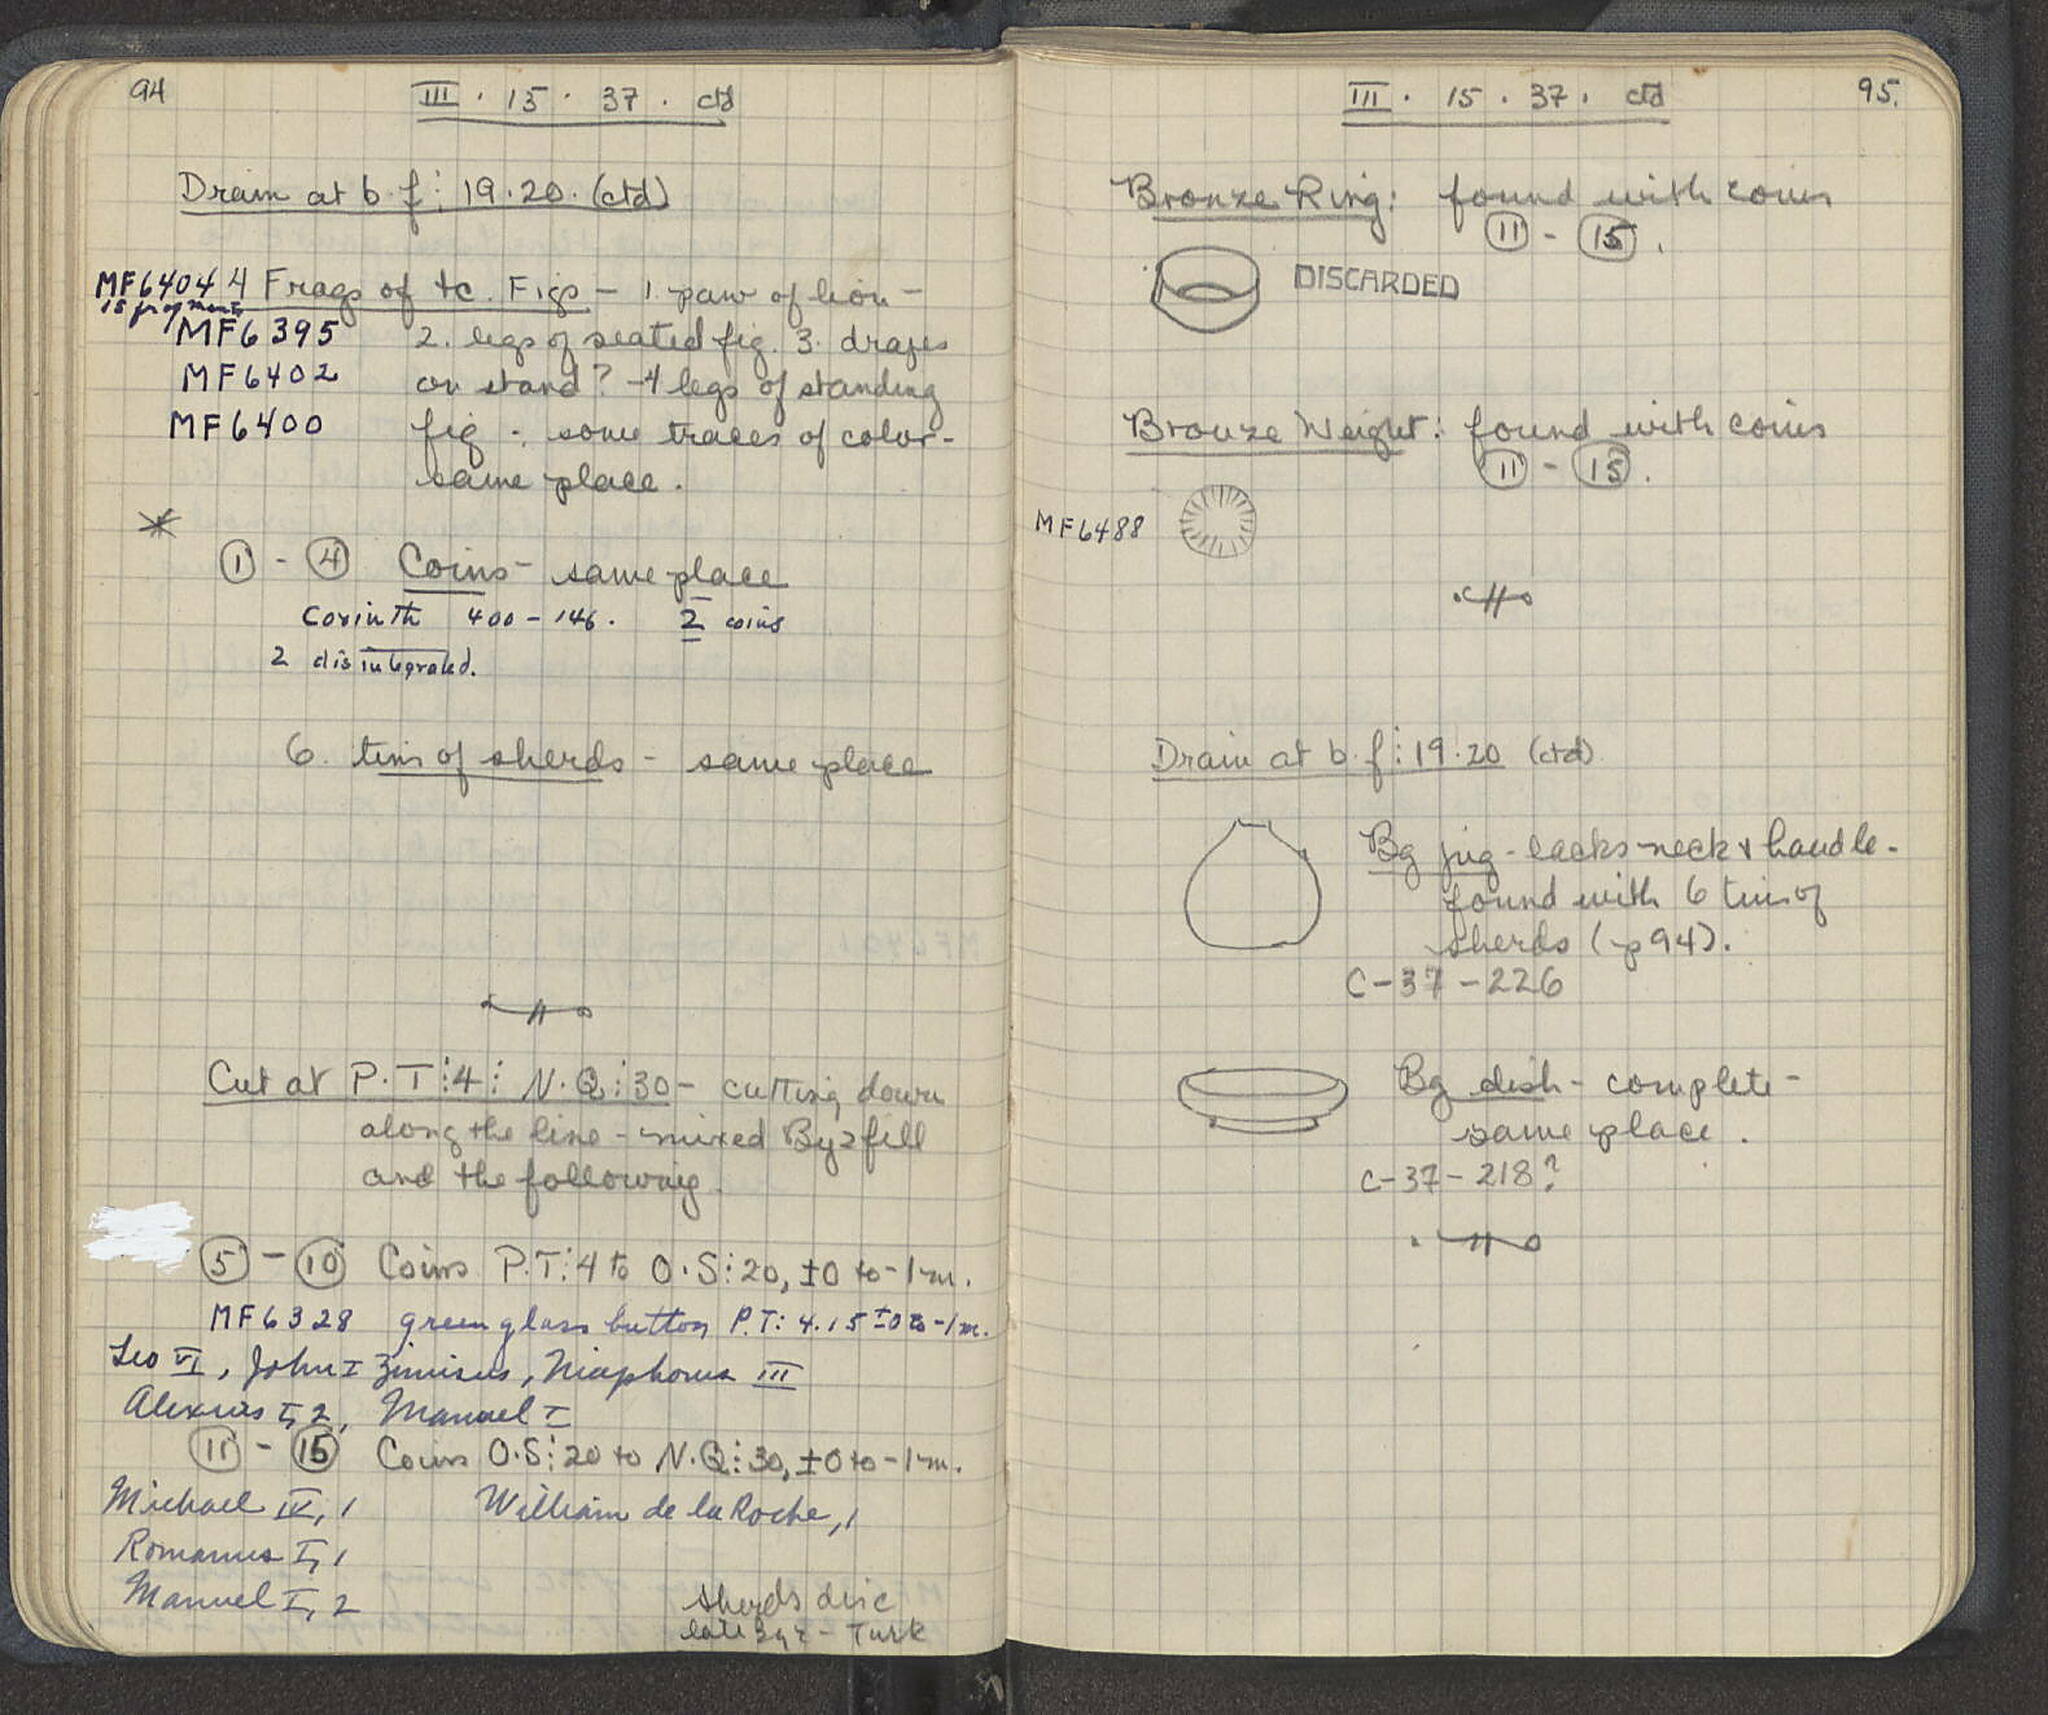 94
III · 15 · 37 · ctd
Drain at b.f: 19.20. (ctd)
MF6404 4 Frags of tc. Figs - 1. paw of lion -
15 fragments
MF6395 2. legs of seated fig. 3. drapes
MF6402 on stand? - 4 legs of standing
MF6400 fig -; some traces of color -
same place.
① - ④ Coins - same place
Corinth 400-146. 2 coins
2 disintegrated.
6 tins of sherds - same place
Cut at P.T:4: N.Q:30 - cutting down
along the line - mixed Byz fill
and the following.
⑤ - ⑩ Coins P.T:4 to O.S:20, ±0 to -1m.
MF6328 green glass button P.T: 4.15 ±0 to -1m.
Leo VI, John I Zimisces, Nicephorus III
Alexius I, 2, Manuel I
⑪ - ⑮ Coins O.S:20 to N.Q:30, ±0 to -1m.
Michael IV, 1 William de la Roche, 1
Romanus I, 1
Manuel I, 2
sherds disc
late Byz - Turk
III · 15 · 37 · ctd
95.
Bronze Ring: found with coins
⑪ - ⑮.
DISCARDED
Bronze Weight: found with coins
⑪ - ⑮.
MF6488
Drain at b.f: 19.20 (ctd)
Bg jug - lacks neck & handle -
found with 6 tins of
sherds (p94).
C-37-226
Bg dish - complete -
same place.
C-37-218?